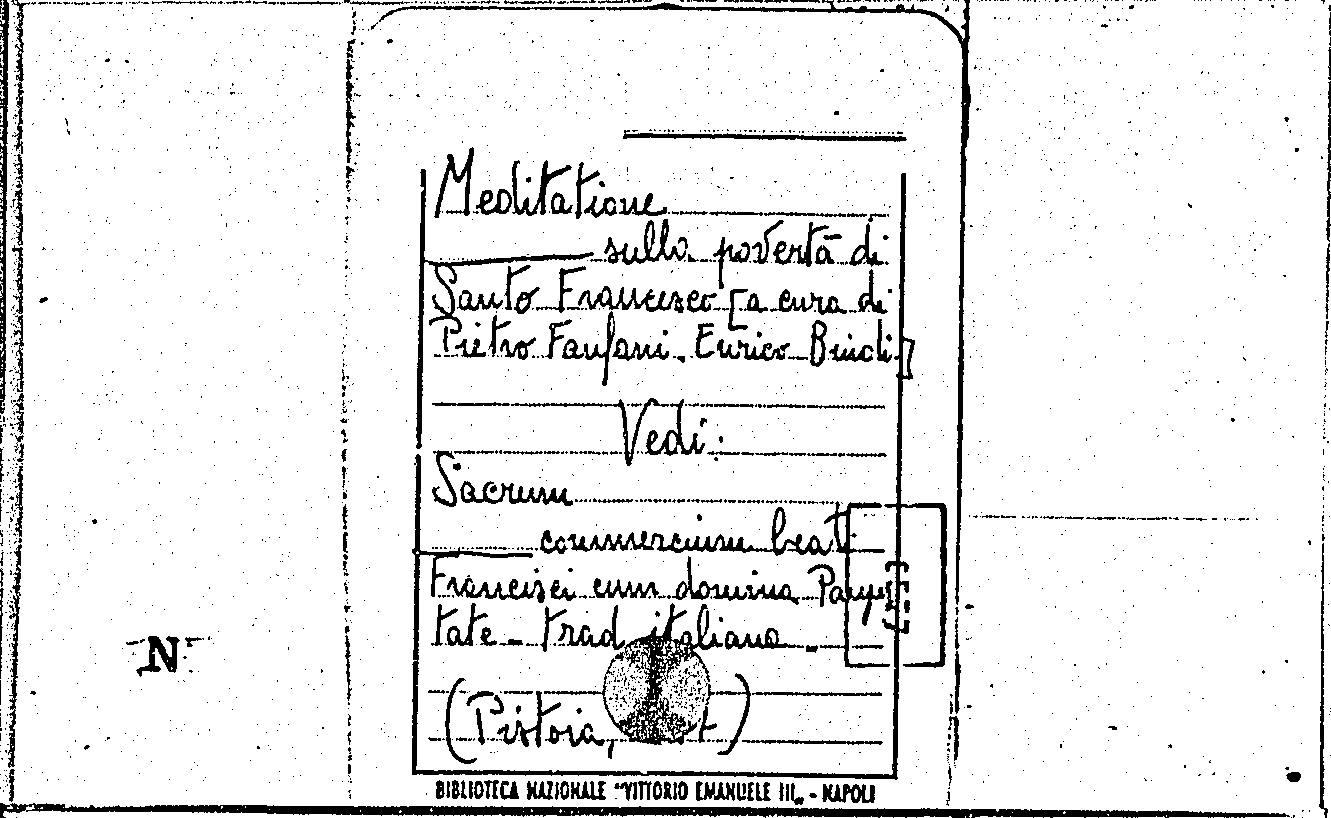 Meditatione
sulla povertà di
Santo Francesco [a cura di
Pietro Fanfani. Enrico Bindi]
Vedi:
Sacrum
commercium beati
Francisci cum domina Pauper
tate - trad. italiana -
(Pistoia,
N
BIBLIOTECA NAZIONALE "VITTORIO EMANUELE III" - NAPOLI